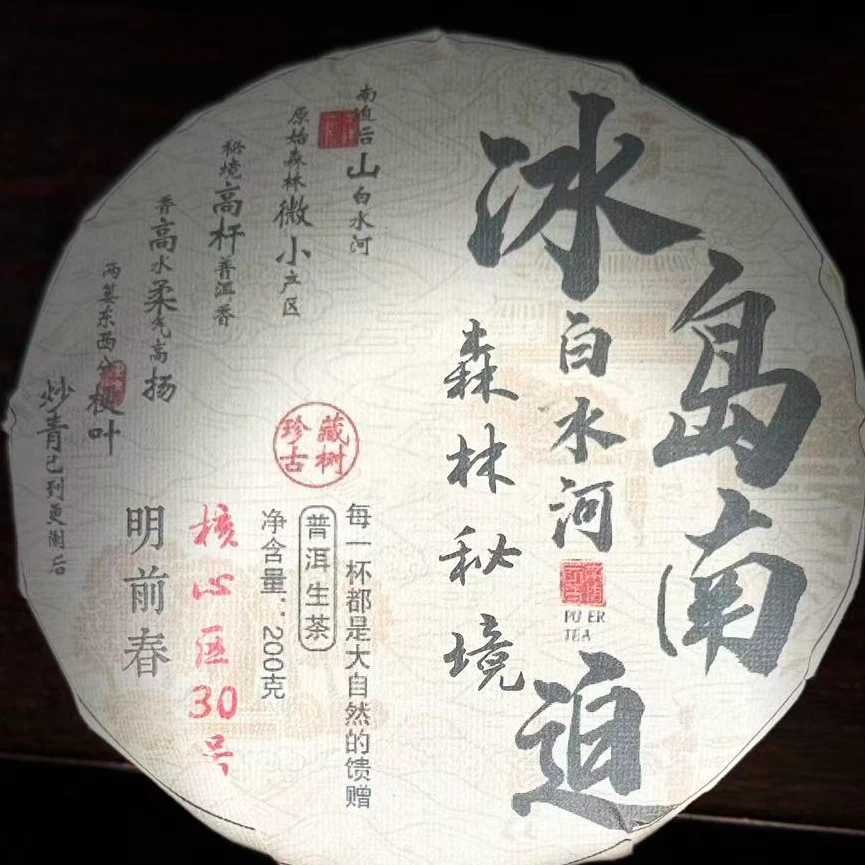 冰岛南迫
白水河
PU ER
TEA
森林秘境
南迫后山白水河
原始森林微小产区
秘境高杆普洱香
香高水柔气高扬
两篓东西分梗叶
炒青已到更阑后
珍藏古树
每一杯都是大自然的馈赠
普洱生茶
净含量：200克
核心区30号
明前春